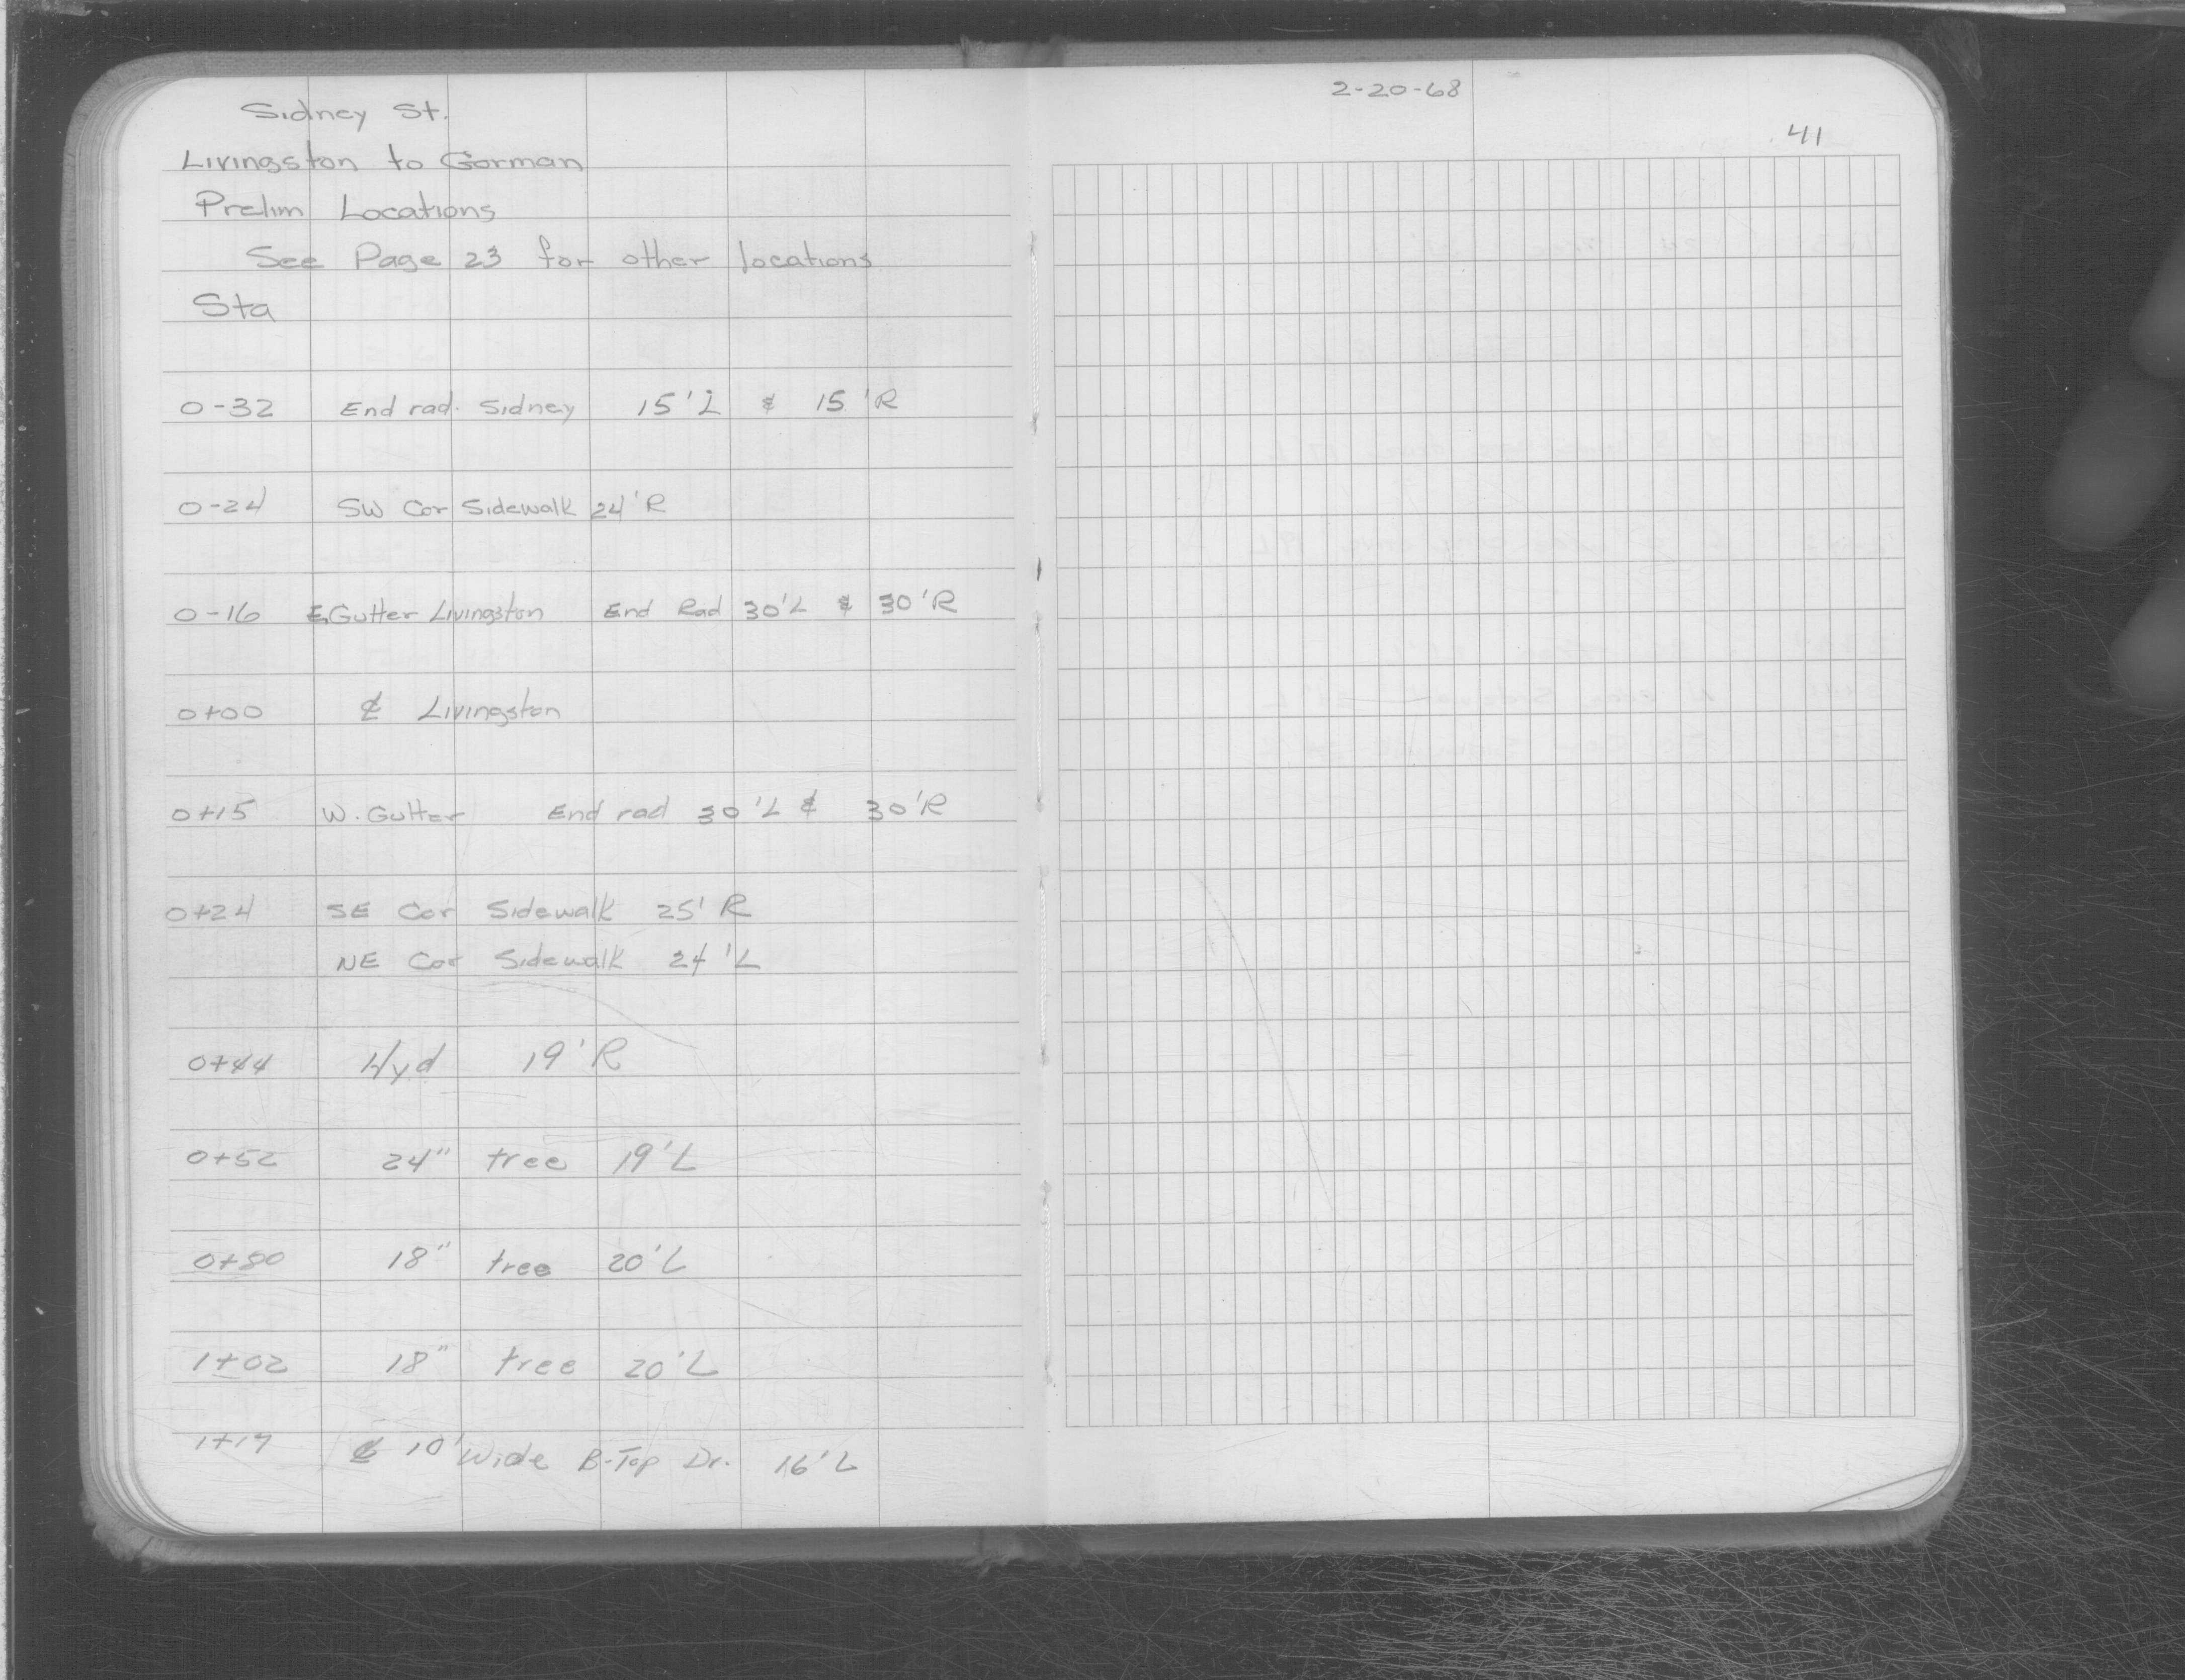 Sidney St.
Livingston to Gorman
Prelim Locations
See Page 23 for other locations
Sta
0-32 End rad. Sidney 15'L & 15'R
0-24 SW Cor Sidewalk 24'R
0-16 E Gutter Livingston End Rad 30'L & 30'R
0+00 ℄ Livingston
0+15 W. Gutter End rad 30'L & 30'R
0+24 SE Cor Sidewalk 25'R
NE Cor Sidewalk 24'L
0+44 Hyd 19'R
0+52 24" tree 19'L
0+80 18" tree 20'L
1+02 18" tree 20'L
℄ 10' Wide B-Top Dr. 16'L
2-20-68
41